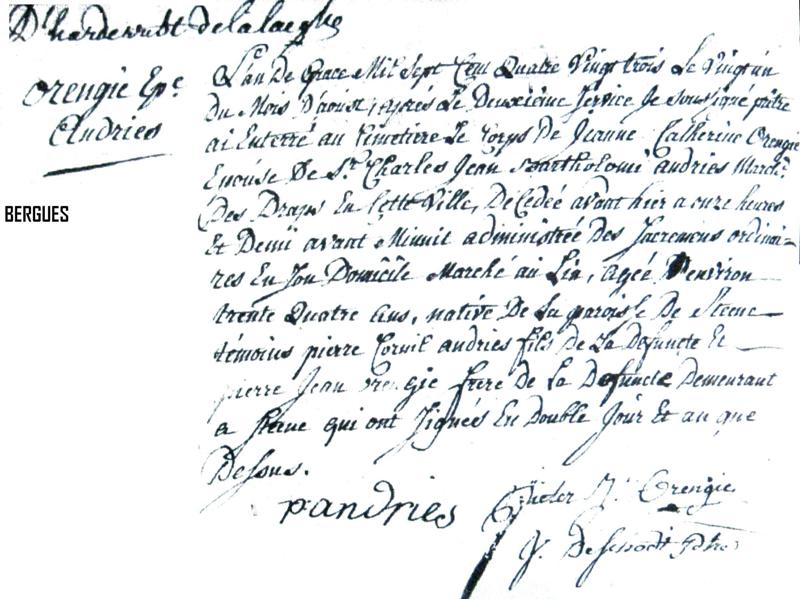 D' harderwbt delalaeghe
Orengie Epe
Andries
BERGUES
L'an De Grace Mil Sept Cent Quatre Vingt trois Le Vingt un
Du Mois D'aoust, aprés Le Deuxiéme Service Je Sousigné prêtre
ai Enterré au Cimetiere Le Corps De Jeanne Catherine Orengie
Epouse De Sr. Charles Jean Bartholomé andries March.
Des Draps En Cette Ville, DeCedée avant hier a onze heures
Et Demii avant Minuit administrée Des Sacremens ordinai=
res En Son Domicile Marché au Lin, agée D'environ
trente Quatre ans, native De La paroisse De Steene
témoins pierre Cornil andries fils De La Defuncte Et
pierre Jean orengie frere De La Defuncte Demeurant
a Steene qui ont Signés En Double Jour Et an que
Dessus.
pandries
Pieter J. Orengie
J. De Schodt Ptre